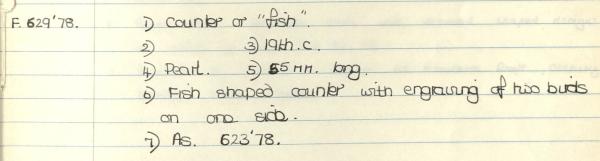 F. 629'78. 1) Counter or "fish".
2) 3) 19th. c.
4) Pearl. 5) 55 mm. long.
6) Fish shaped counter with engraving of two birds
on one side.
7) As. 623'78.